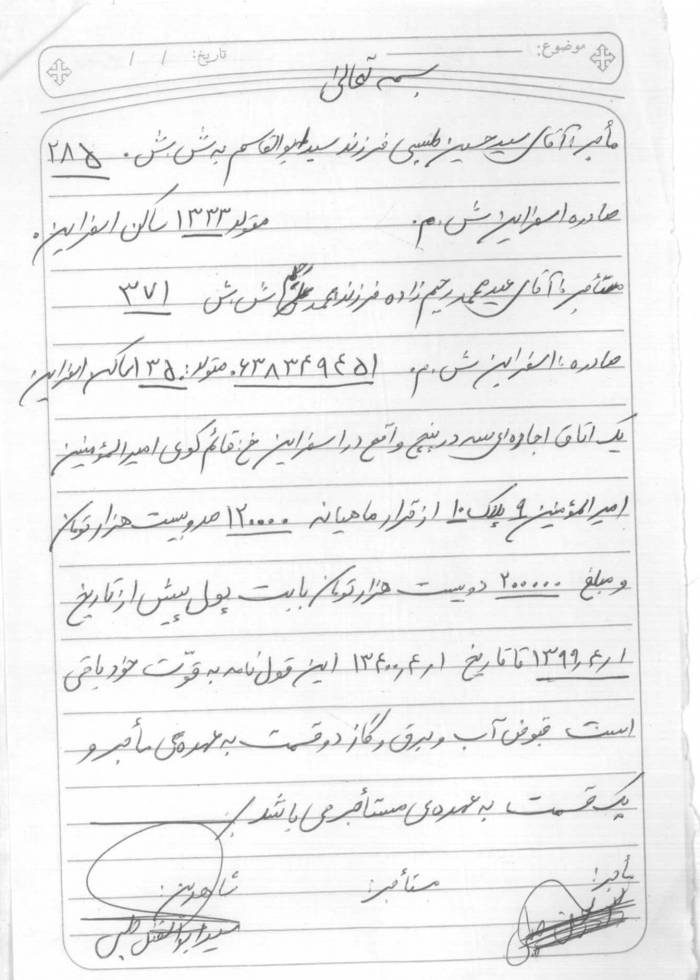 موضوع: تاریخ: / /
بسمه تعالی
مأجر: آقای سید حسین طبیبی فرزند سید ابوالقاسم به ش.ش. ۲۸۵
صادره اسفراین: ش.م. متولد ۱۳۳۳ ساکن اسفراین.
مستأجر: آقای عید محمد رحیم زاده فرزند محمد ش ش ۳۷۱
صادره: اسفراین ش.م. ۰۶۳۸۳۴۹۴۵۱ متولد: ۱۳۵۰ ساکن اسفراین
یک اتاق اجاره‌ای سه در پنج واقع در اسفراین خ قائم کوی امیرالمؤمنین
امیرالمؤمنین ۹ پلاک ۱۰ از قرار ماهیانه ۱۲۰۰۰۰ صد و بیست هزار تومان
و مبلغ ۲۰۰۰۰۰ دویست هزار تومان بابت پول پیش از تاریخ
۱۳۹۹٫۴٫۱ تا تاریخ ۱۳۴۰۰٫۴٫۱ این قولنامه به قوّت خود باقی
است قبوض آب و برق و گاز دو قسمت به عهده‌ی مأجر و
یک قسمت به عهده‌ی مستأجر می باشد.
مأجر: مستأجر: شاهدین:
سید ابوالفضل طبیبی